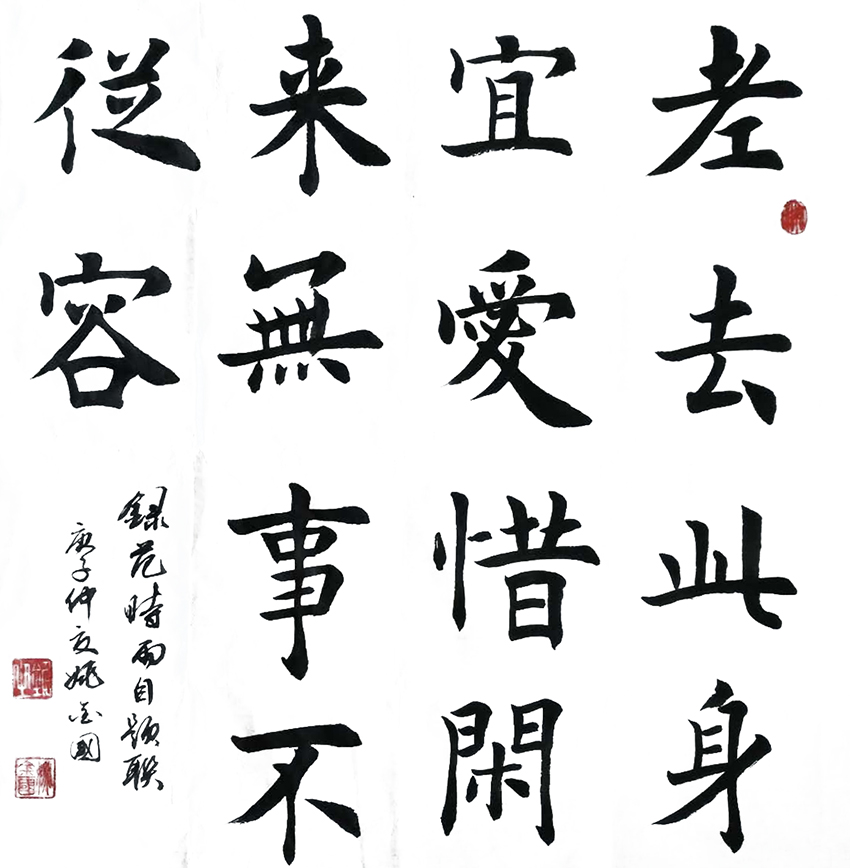 老去此身
宜愛惜閑
来無事不
従容
録范時雨自題聯
庚子仲夏姚金國